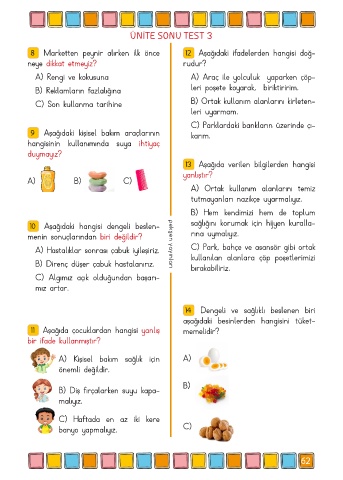 ÜNİTE SONU TEST 3
8 Marketten peynir alırken ilk önce
neye dikkat etmeyiz?
A) Rengi ve kokusuna
B) Reklamların fazlalığına
C) Son kullanma tarihine
9 Aşağıdaki kişisel bakım araçlarının
hangisinin kullanımında suya ihtiyaç
duymayız?
A)
B)
C)
10 Aşağıdaki hangisi dengeli beslen-
menin sonuçlarından biri değildir?
A) Hastalıklar sonrası çabuk iyileşiriz.
B) Direnç düşer çabuk hastalanırız.
C) Algımız açık olduğundan başarı-
mız artar.
11 Aşağıda çocuklardan hangisi yanlış
bir ifade kullanmıştır?
A) Kişisel bakım sağlık için
önemli değildir.
B) Diş fırçalarken suyu kapa-
malıyız.
C) Haftada en az iki kere
banyo yapmalıyız.
pelikşen yayınları
12 Aşağıdaki ifadelerden hangisi doğ-
rudur?
A) Araç ile yolculuk yaparken çöp-
leri poşete koyarak, biriktiririm.
B) Ortak kullanım alanlarını kirleten-
leri uyarmam.
C) Parklardaki bankların üzerinde çı-
karım.
13 Aşağıda verilen bilgilerden hangisi
yanlıştır?
A) Ortak kullanım alanlarını temiz
tutmayanları nazikçe uyarmalıyız.
B) Hem kendimizi hem de toplum
sağlığını korumak için hijyen kuralla-
rına uymalıyız.
C) Park, bahçe ve asansör gibi ortak
kullanılan alanlara çöp poşetlerimizi
bırakabiliriz.
14 Dengeli ve sağlıklı beslenen biri
aşağıdaki besinlerden hangisini tüket-
memelidir?
A)
B)
C)
62